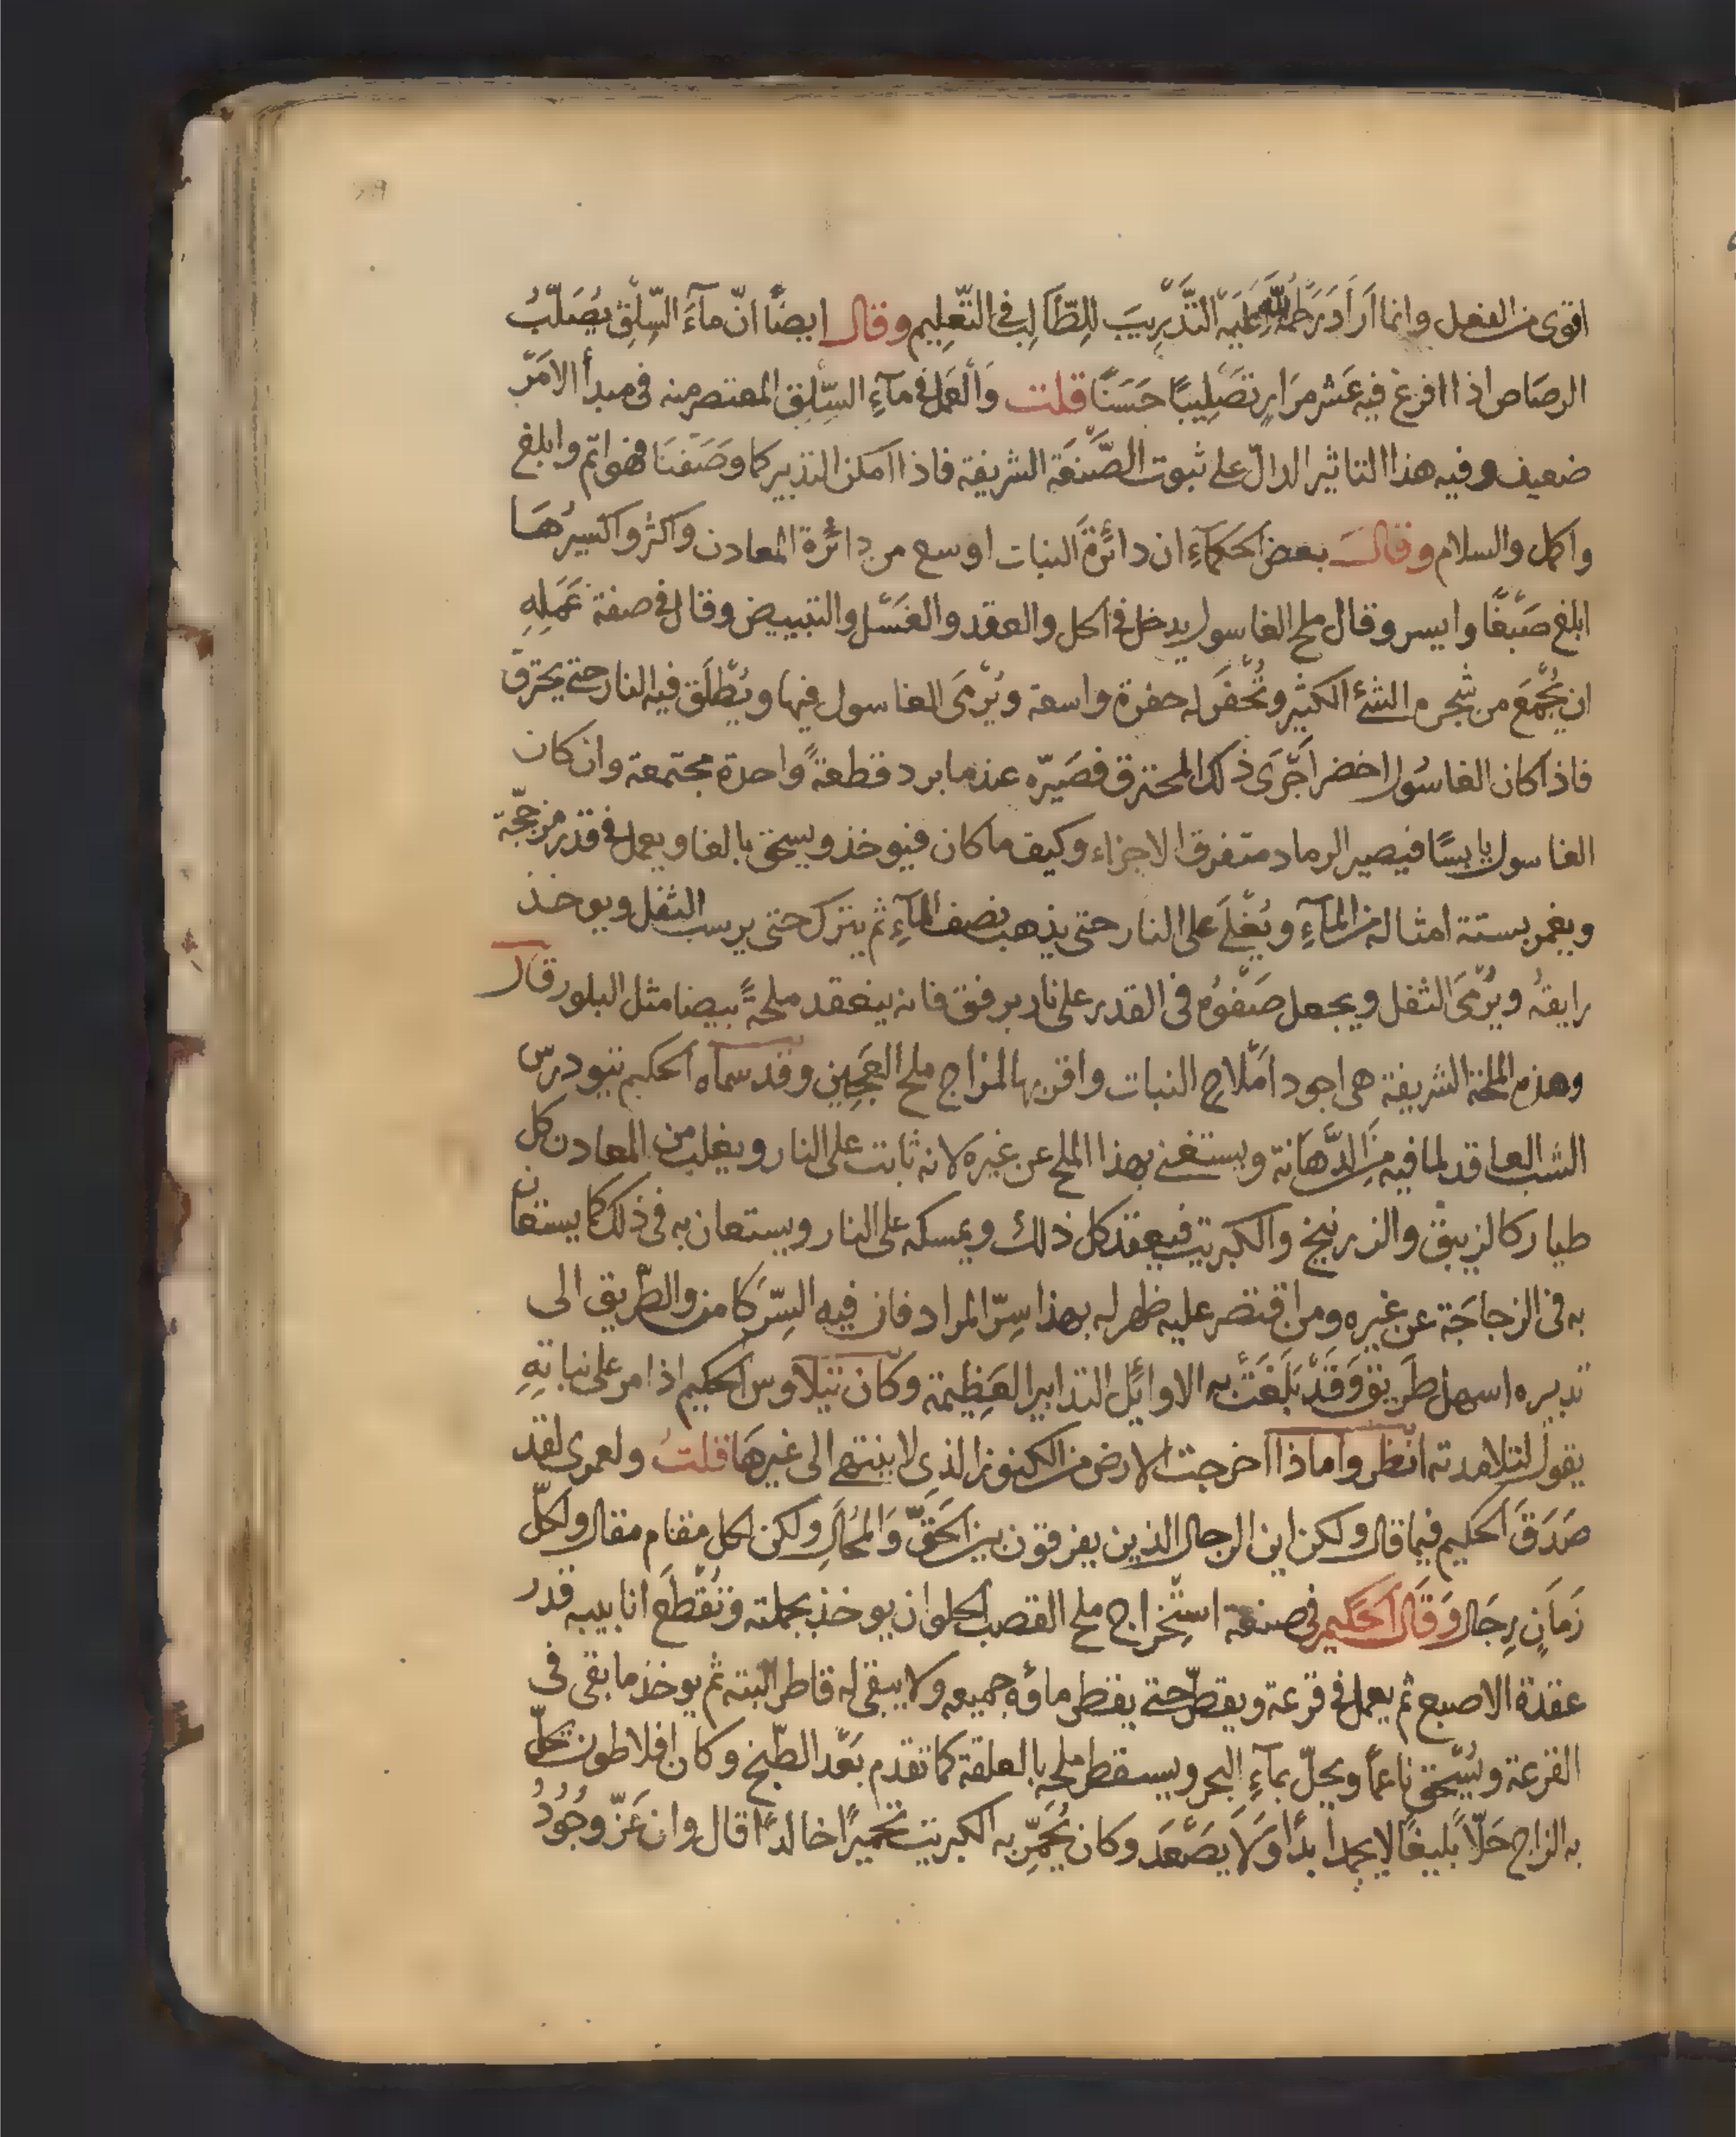 اقوى من الفعل وانما اَرَادَ رَحمَةُ اللّٰه عَلَيْه التَّدْرِيبَ لِلطَّالِب فى التَّعْلِيم وقال ايضًا انّ مآءَ السِّلْقِ يُصَلِّبُ
الرصَاص اذا افرغ فيه عَشْر مِرَارٍ تَصْلِيبًا حَسَنًا قلت وَالْعَمَل فى مآءِ السِّلْقِ المعتصر منه فى مبدأ الاَمْر
ضعيف وفيه هذا التاثير الدالّ على ثبوت الصَّنْعَة الشريفة فاذا امكن التدبير كما وَصَفْنَا فهو اتم وابلغ
واكمل والسلام وقالَ بعض الحكمآءِ ان دائرَةَ النبات اوسع من دائرة المعادن واكثر واكسيرُهَا
ابلغ صَبْغًا وايسر وقال ملح الغاسول يدخل فى الحل والعقد والغَسْل والتبييض وقال فى صفة عَمَلِهِ
ان يُجْمَعَ من شجره الشئ الكثير وتُحْفَر له حفرة واسعة ويُرْمَى الغاسول فيها ويُطْلَق فيه النار حتى يحترق
فاذا كان الغاسُول اخضر اَجْرَى ذلك المحترق فصَيّره عندما برد قطعةً واحدة مجتمعة وان كان
الغاسول يابسًا فيصير الرماد متفرق الاجزاء وكيف ما كان فيوخذ ويسحق بالغا ويعمل فى قدر مزججة
ويغمر بستة امثاله من المآءِ ويُغْلَى على النار حتى يذهب نصف المآءِ ثم يترك حتى يرسب الثفل ويوخذ
رايقهُ ويُرْمَى الثفل ويجعل صَفْوُه فى القدر على نار برفق فانه ينعقد ملحةً بيضا مثل البلور قال
وهذه الملحة الشريفة هى اجود اَمْلاح النبات واقربها لمزاج ملح العَجِين وقد سماه الحكيم تيودرس
الشب العاقد لما فيه مِنَ الدَّهَانة ويستغنى بهذا الملح عن غيره لانه ثابت على النار ويغلب من المعادن كل
طيار كالزيبق والزرنيخ والكبريت فيعقد كل ذلك ويمسكه على النار ويستعان به فى ذلك كما يستعان
به فى الزجاجَة عن غيره ومن اقتصر عليه ظهر له بهذا سِرّ المراد فان فيه السِّرّ كامن والطّريق الى
تدبيره اسهل طَريق وَقَدْ بَلَغَتْ به الاوائل التدابير العَظِيمة وكَان تيلاوس الحكيم اذا مر على نباتِهِ
يقول لتلامدته انظروا ماذا اخرجت الارض من الكنوز الذى لا ينتهى الى غيرهَا قلتُ ولعمرى لقد
صَدَقَ الحكيم فيما قال ولكن اين الرجال الذين يفرقون بين الحَقّ وَالمُحَالِ ولكن لكل مقام مقال ولكلّ
زَمَانٍ رِجَال وَقَالَ الحَكيم فى صنعة اسْتِخْراج ملح القصب الحلو ان يوخذ بجملته وتُقْطَع انابيبه قدر
عقدة الاصبع ثم يعمل فى قرعة ويقطر حتى يقطر ماؤه جميعه ولا يبقى له قاطر البته ثم يوخذ ما بقى فى
القرعة ويُسْحَق ناعمًا ويحلّ بمآءِ البحر ويسقطر ملحه بالعلقة كما تقدم بَعْد الطّبخ وكان افلاطون يحلّ
به الزاج حَلّاً بَليغًا لا يجمد ابدًا وَلَا يَصْعَد وكان يُحَمِّر به الكبريت تحميرًا خالدًا قال وان عَزّ وجُودُ